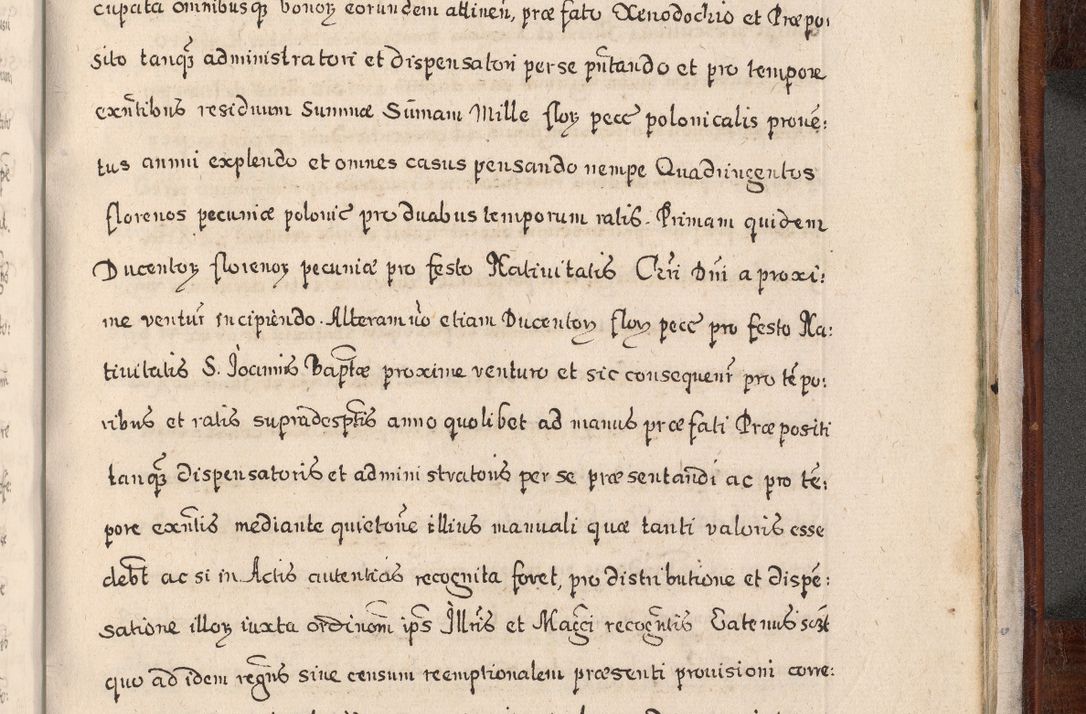 cupata omnibusq bonoꝝ eorundem attineñ, præfato Xenodochio et Præpo:
sito tanq̃ administratori et dispensatori per se pñtando et pro tempore
exñtibus residuum Summæ Sum̃am Mille floꝝ pecc̃ polonicalis prove᷉:
tus annui explendo et omnes casus pensando nempe Quadringentos
florenos pecuniæ polonic̃ pro duabus temporum ratis. Primam quidem
Ducentoꝝ florenoꝝ pecuniæ pro festo Nativitatis Chri Dñi a proxi:
me ventur̃ incipiendo. Alteram v̀o etiam Ducentoꝝ floꝝ pecc̃ pro festo Na:
tivitatis S. Joannis Baptæ proxime venturo et sic consequenr̃ pro te᷉po:
ribus et ratis supradesptis anno quolibet ad manus præfati Præpositi
tanq̃ dispensatoris et administratoris per se præsentandi ac pro te᷉:
pore exñtis mediante quietone illius manuali quæ tanti valoris esse
debt ac si in Actis autenticis recognita foret, pro distributione et dispe᷉:
satione illoꝝ iuxta ordinom̃ ips Illris et Magci recogntis Eatenus sczt
quo ad idem regnus sive censum reemptionalem præsenti provisioni corre: